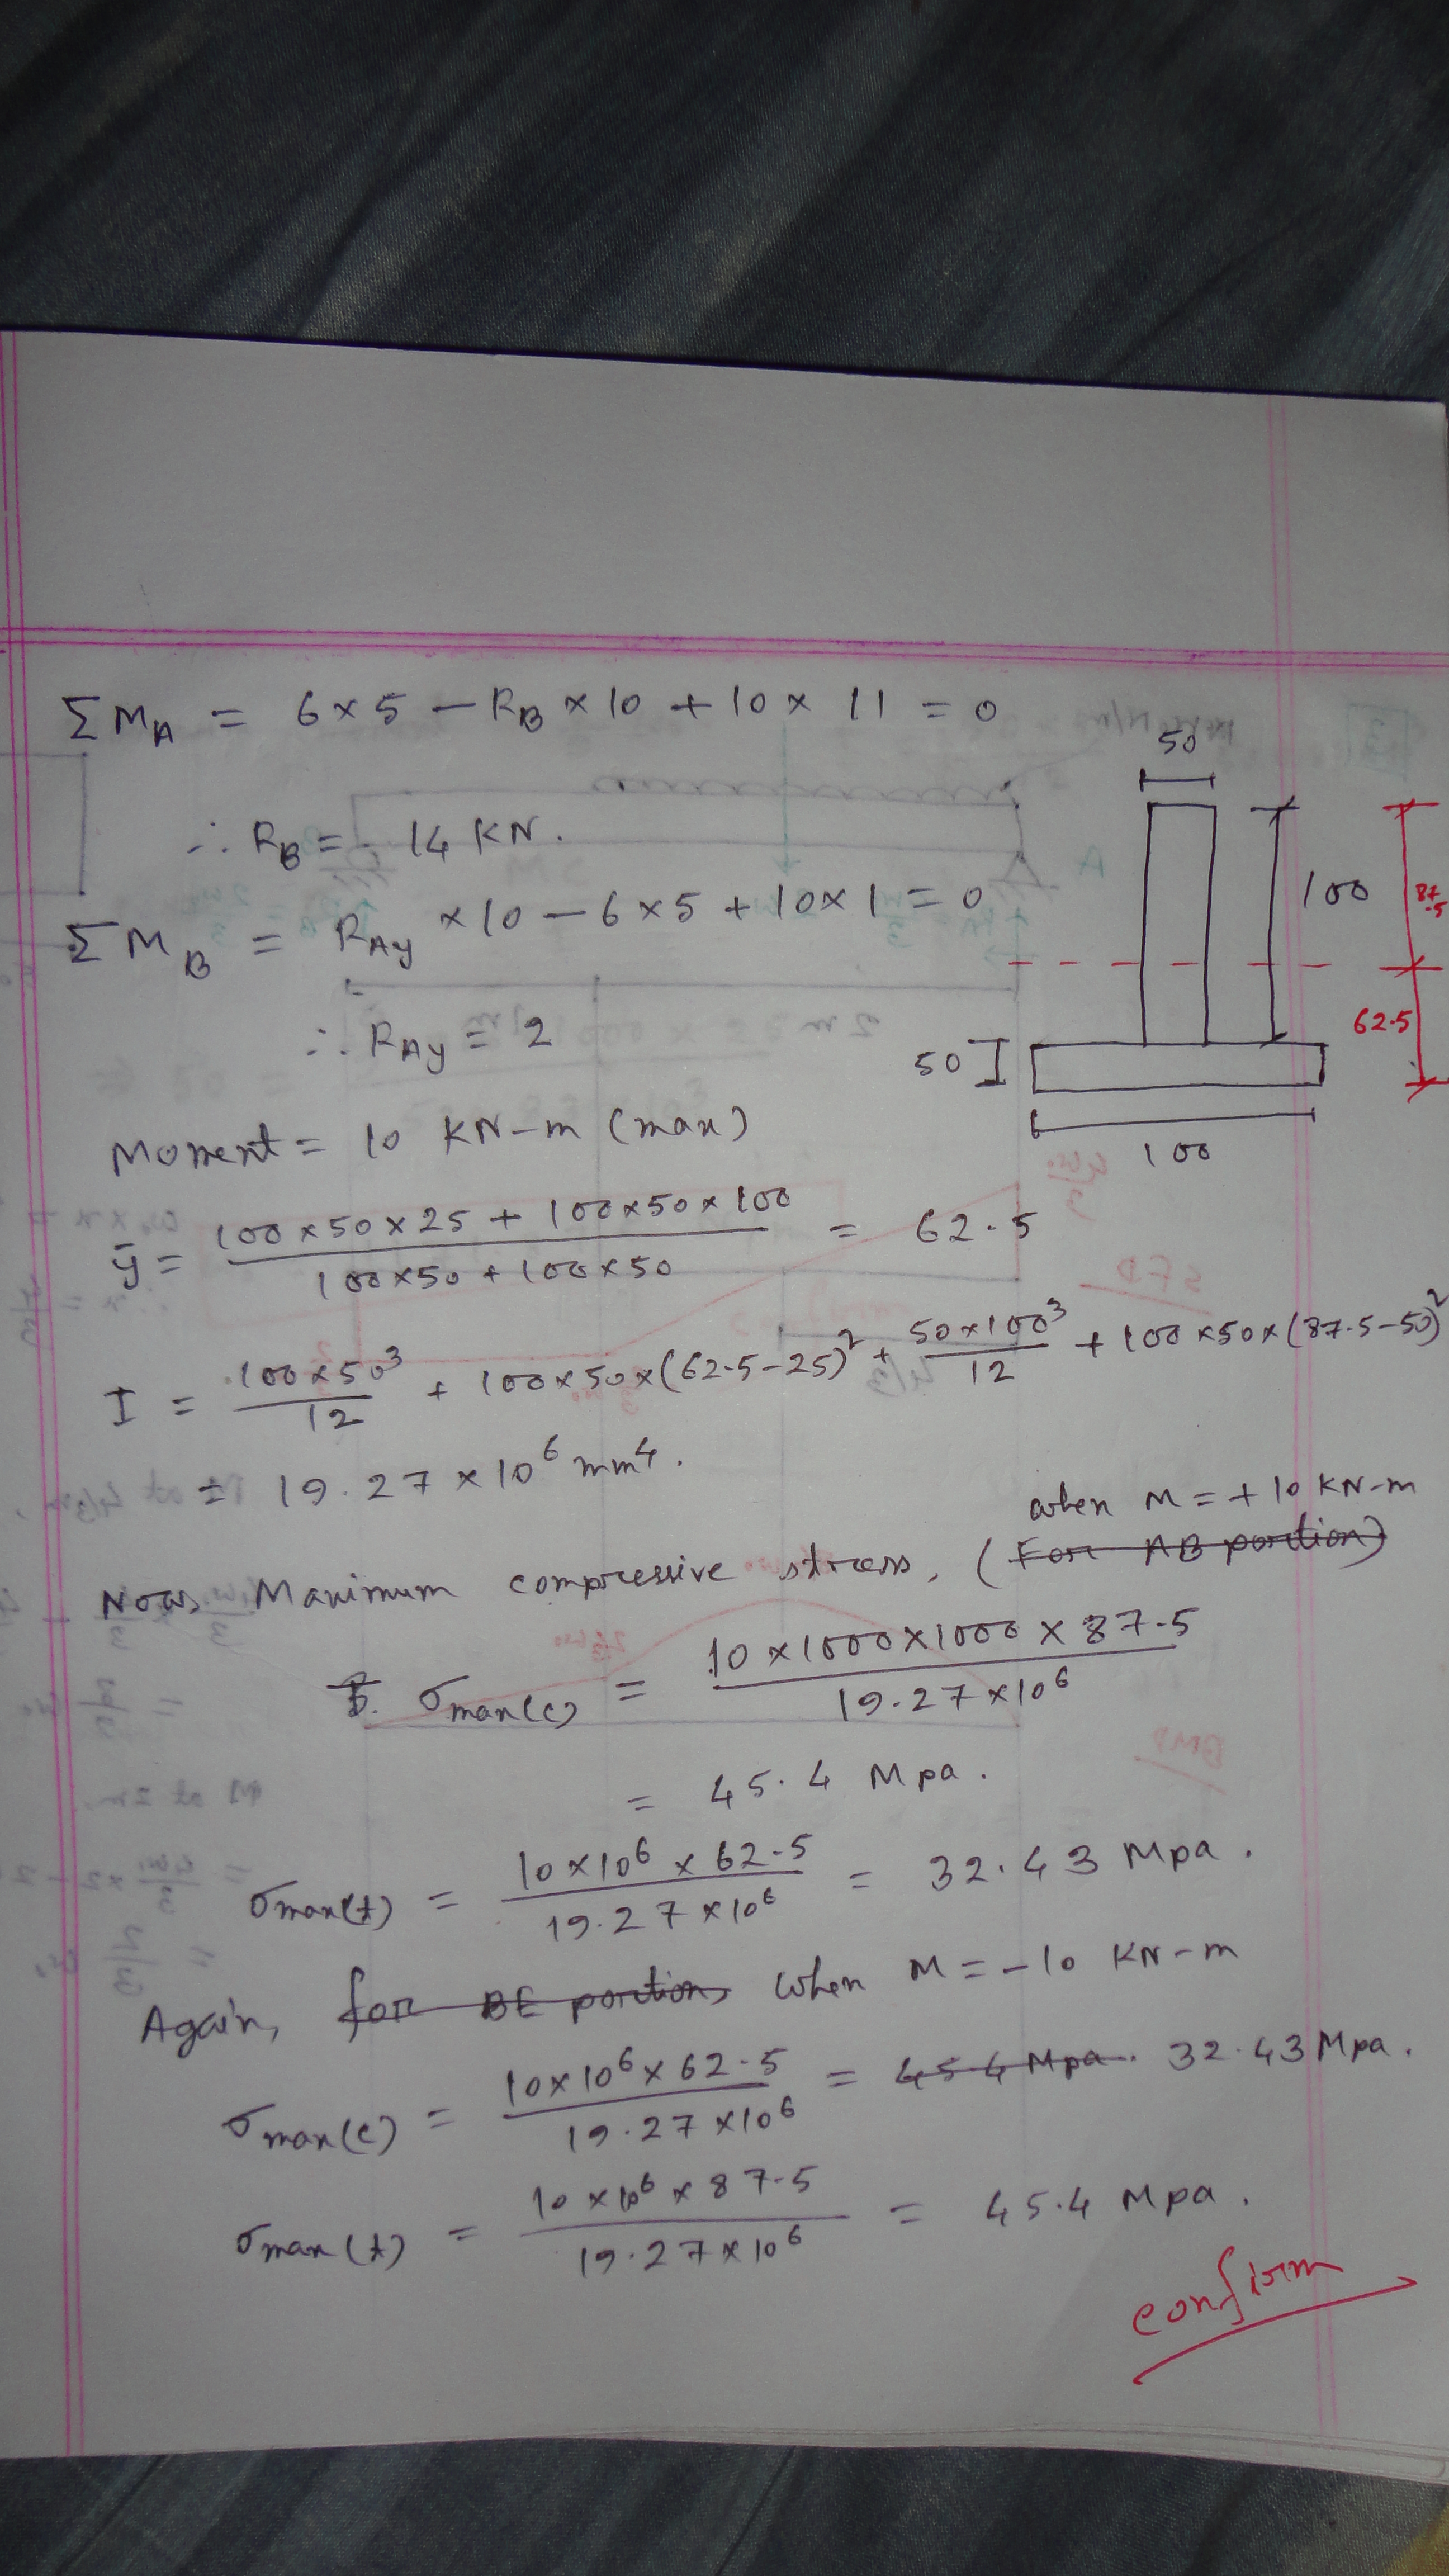 ΣM_A = 6×5 – R_B × 10 + 10 × 11 = 0
∴ R_B = 14 KN.
ΣM_B = R_Ay × 10 – 6×5 + 10×1 = 0
∴ R_Ay = 2
50
100
87.5
62.5
50
100
Moment = 10 KN-m (max)
ȳ = (100×50×25 + 100×50×100) / (100×50 + 100×50) = 62.5
I = 100×50³/12 + 100×50×(62.5–25)² + 50×100³/12 + 100×50×(87.5–50)²
= 19.27×10⁶ mm⁴.
when M = +10 KN-m
Now, Maximum compressive stress, (For AB portion)
σmax(c) = (10×1000×1000×87.5) / (19.27×10⁶)
= 45.4 Mpa.
σmax(t) = (10×10⁶×62.5) / (19.27×10⁶) = 32.43 Mpa.
Again, for BE portion, when M = –10 KN-m
σmax(c) = (10×10⁶×62.5) / (19.27×10⁶) = 45.4 Mpa. 32.43 Mpa.
σmax(t) = (10×10⁶×87.5) / (19.27×10⁶) = 45.4 Mpa.
confirm